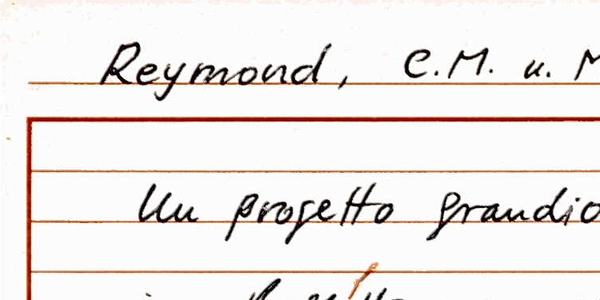 Reymond, C.M. u. M
Un progetto grandio